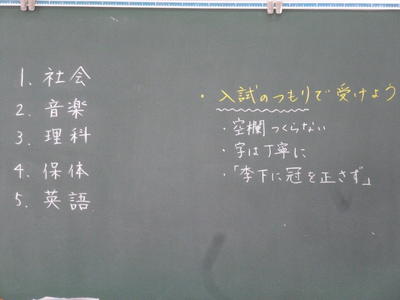 1. 社会
2. 音楽
3. 理科
4. 保体
5. 英語
・入試のつもりで受けよう
・空欄つくらない
・字は丁寧に
・「李下に冠を正さず」